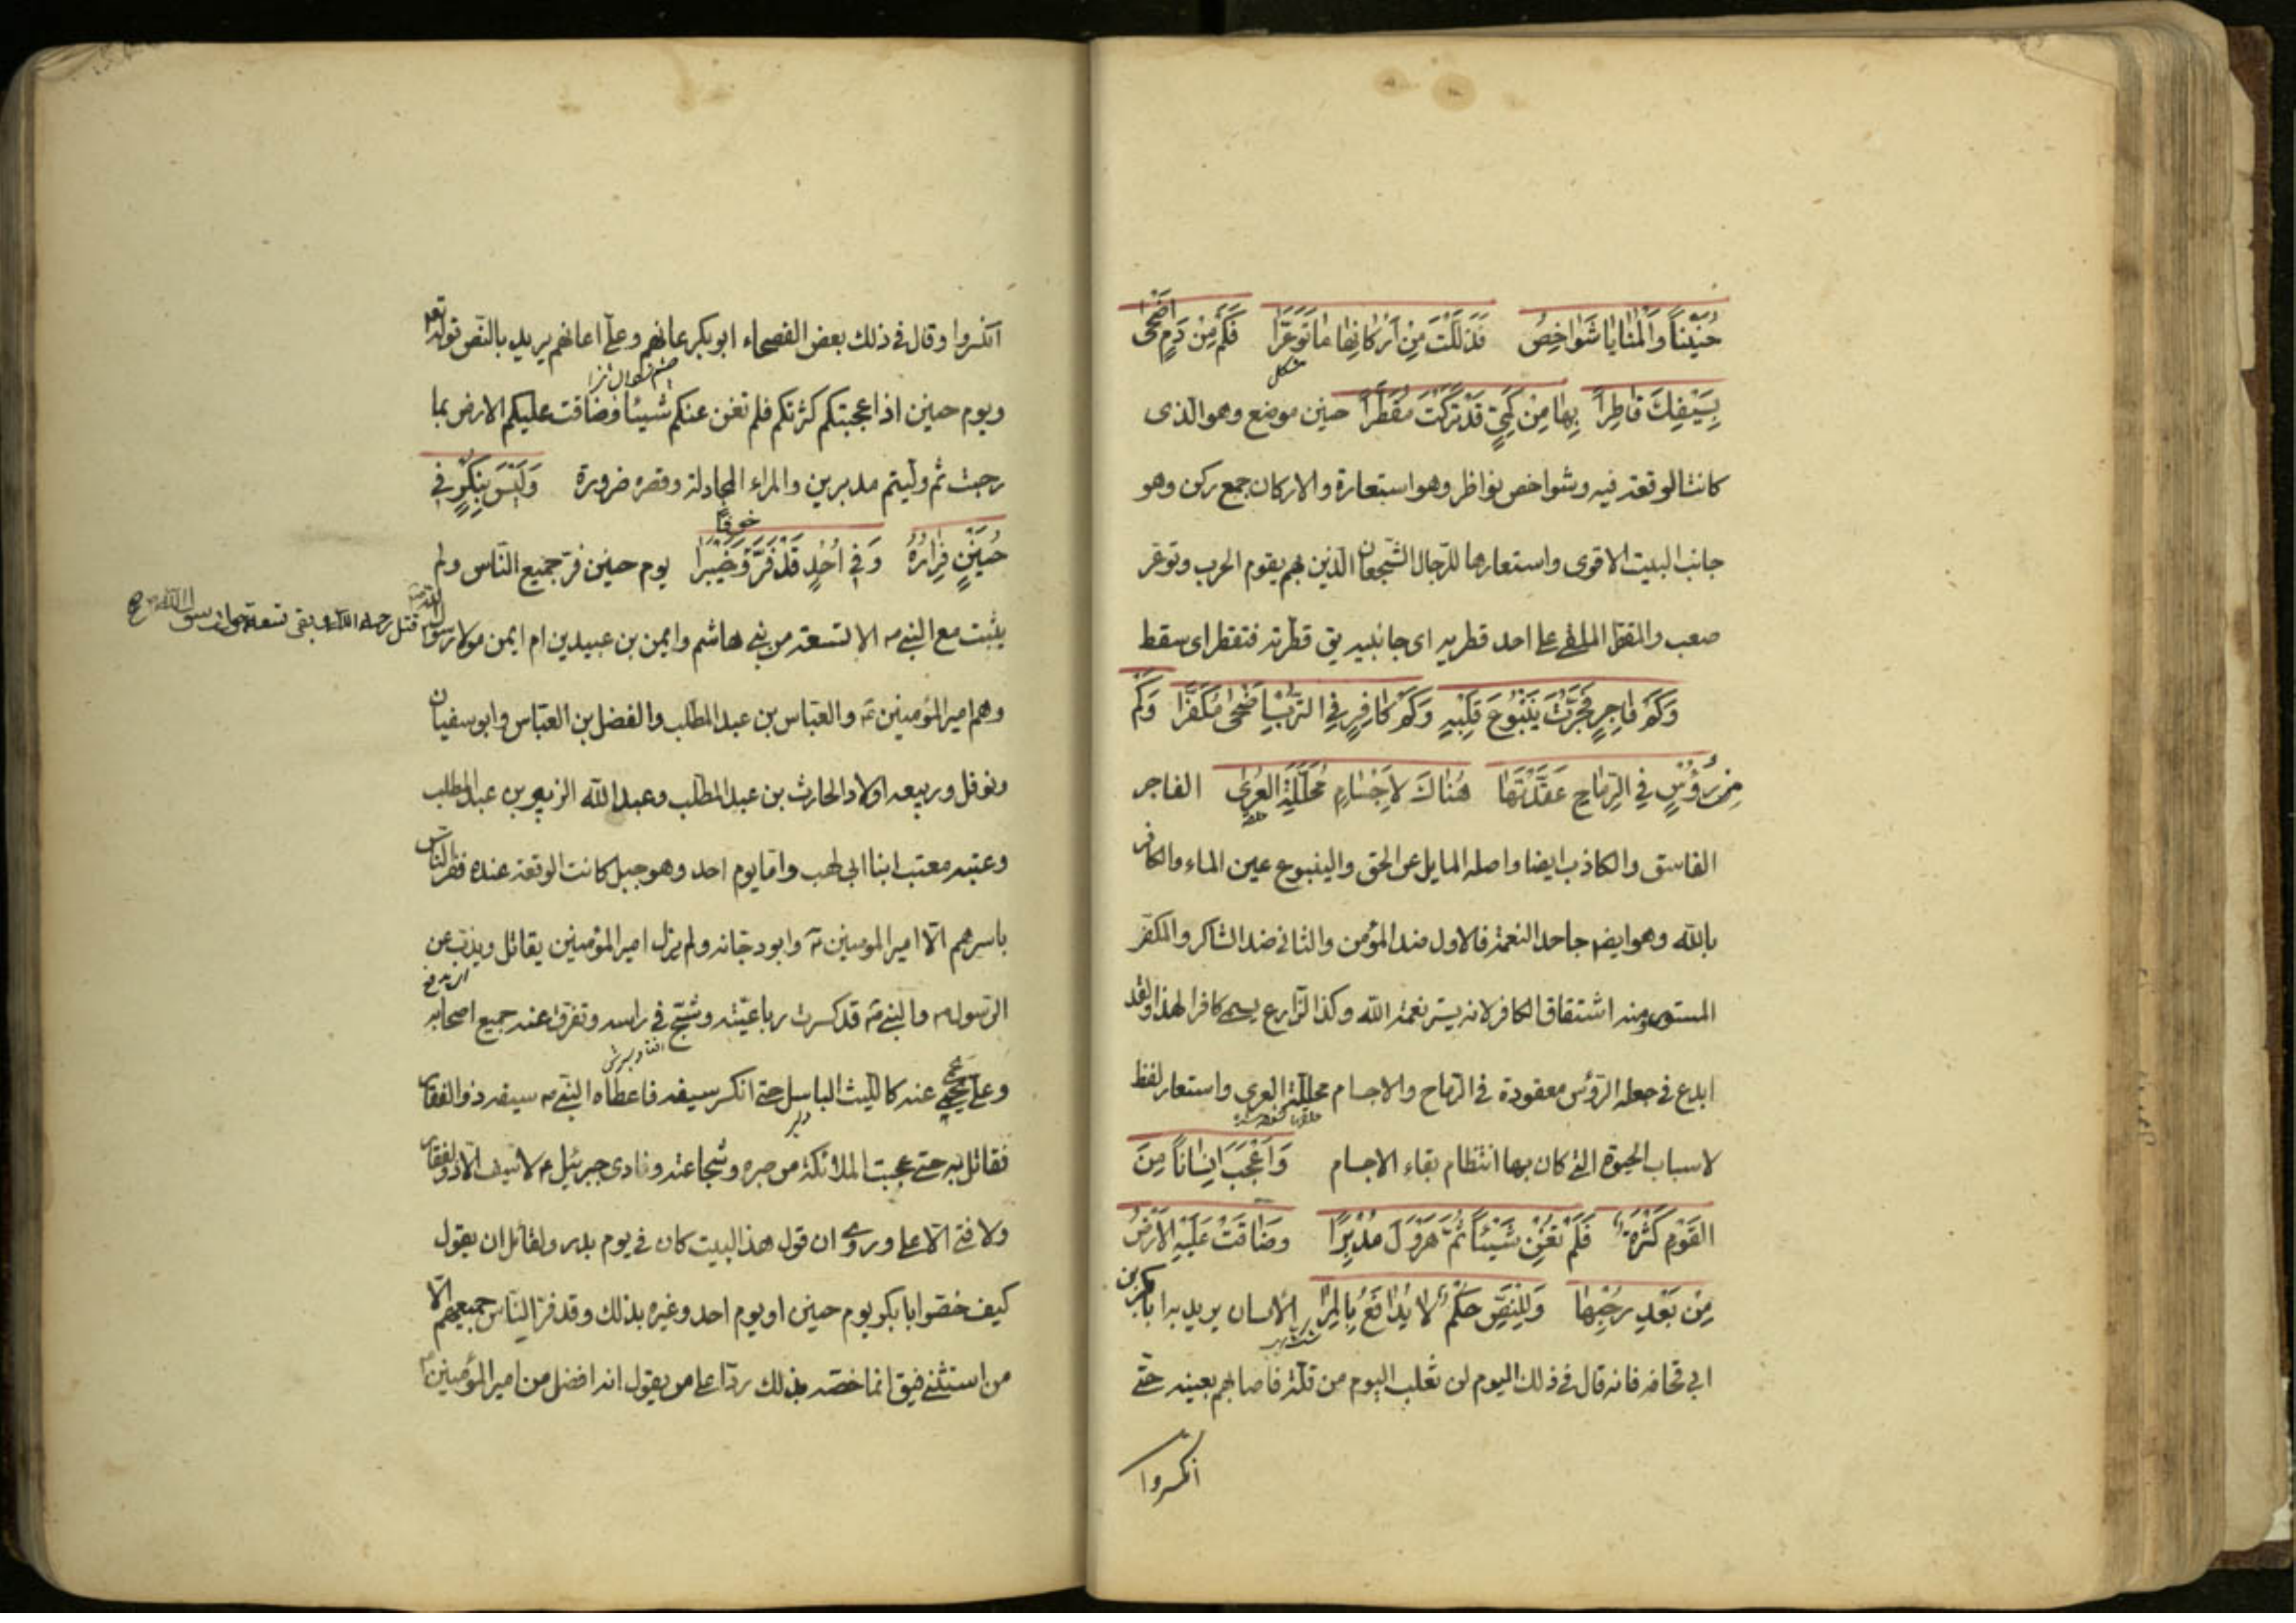 حُنَيْناً وَالْمَنَايَا شَوَاخِصُ قَذَلَّلْتَ مِنْ أَرْكَانِهَا مَا تَوَعَّرَا فَكَمْ مِنْ دَمٍ اَضْحَىٰ
مشكل
بِسَيْفِكَ قَاطِراً بِهَا مِنْ كَمِيٍّ قَدْ تَرَكْتَ مُقَطَّراً حنين موضع وهو الذى
كانت الوقعة فيه وشواخص نواظر وهو استعارة والاركان جمع ركن وهو
جانب البيت الاقوى واستعارها للرجال الشجعان الذين بهم يقوم الحرب وتوعر
صعب والمقطر الملقى على احد قطريه اى جانبيه يق قطرته فتقطر اى سقط
وَكَمْ فَاجِرٍ فَجَّرْتَ يَنْبُوعَ قَلْبِهِ وَكَمْ كَافِرٍ فِي التُّرْبِ اَضْحَىٰ مُكَفَّرَا وَكَمْ
مِنْ رُؤُسٍ فِي الرِّمَاحِ عَقَدْتَهَا هُنَاكَ لِاَجْسَامٍ مُحَلَّلَةِ الْعُرَىٰ الفاجر
الفاسق والكاذب ايضا واصله المايل عن الحق والينبوع عين الماء والكافر
بالله وهو ايضا جاحد النعمة فالاول ضد المؤمن والثانى ضد الشاكر والمكفر
المستور ومنه اشتقاق الكافر لانه يستر نعمة الله وكذا الزارع يسمى كافرا لهذا ولقد
ابدع فى جعله الرؤس معقودة فى الرماح والاجسام محللة العرى واستعار لفظ
لاسباب الحيوة التى كان بها انتظام بقاء الاجسام وَاَعْجَبَ اِنْسَاناً مِنَ
الْقَوْمِ كَثْرَةٌ فَلَمْ تُغْنِ شَيْئاً ثُمَّ هَرْوَلَ مُدْبِرًا وَضَاقَتْ عَلَيْهِ الْاَرْضُ
مِنْ بَعْدِ رُحْبِهَا وَلِلنَّصِّ حُكْمٌ لَا يُدَافَعُ بِالْمِرَا الانسان يريد به ابا بكر بن
ابى قحافه فانه قال فى ذلك اليوم لن نغلب اليوم من قلة فاصابهم بعينه حتى
انكسروا
انكسروا وقال فى ذلك بعض الفصحاء ابو بكر عانهم وعلى اعانهم يريد بالنص قوله تعه
ويوم حنين اذ اعجبتكم كثرتكم فلم تغن عنكم شيئا وضاقت عليكم الارض بما
رحبت ثم وليتم مدبرين والمراء المجادلة وقصره ضرورة وَلَيْسَ بِنُكْرٍ فِي
حُنَيْنٍ فِرَارُهُ وَفِي اُحُدٍ قَدْ فَرَّ وَخَيْبَرَا يوم حنين فر جميع الناس ولم
خوفًا
يثبت مع النبى ص الا تسعة من بنى هاشم وايمن بن عبيد بن ام ايمن مولا رسول الله
قتل رحمه الله وبقى تسعة حول رسول الله ص
وهم امير المؤمنين ع والعباس بن عبد المطلب والفضل بن العباس وابو سفيان
ونوفل وربيعه اولاد الحارث بن عبد المطلب وعبد الله الزبير بن عبد المطلب
وعتبه معتب ابنا ابى لهب واما يوم احد وهو جبل كانت الوقعة عنده ففر الناس
باسرهم الا امير المومنين ع وابو دجانه ولم يزل امير المؤمنين يقاتل ويذب عن
الرسول ص والنبى ص قد كسرت رباعيته وشج فى راسه وتفرق عنه جميع اصحابه
وعلى يحمى عنه كالليث الباسل حتى انكسر سيفه فاعطاه النبى ص سيفه ذو الفقار
دلير
فقاتل به حتى عجبت الملائكة من صبره وشجاعته ونادى جبرئيل ع لا سيف الا ذو الفقار
ولا فتى الا على وروى ان قول هذا البيت كان فى يوم بدر ولقائل ان يقول
كيف خصوا ابا بكر يوم حنين او يوم احد وغيره بذلك وقد فر الناس جميعهم الا
من استثنى فيق انما خصه بذلك ردا على من يقول انه افضل من امير المؤمنين ع